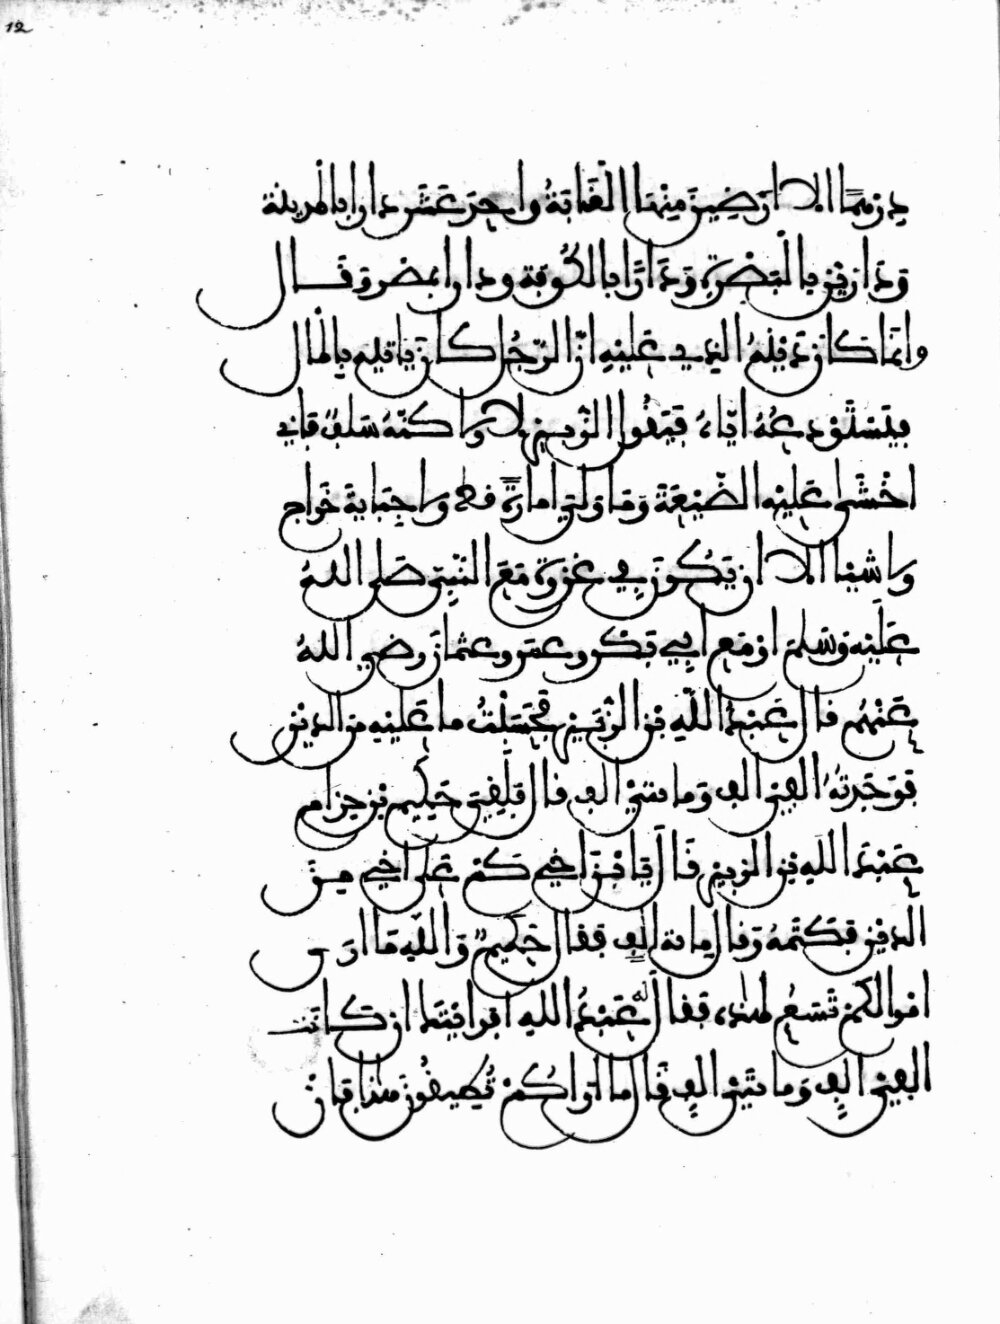 12
دِرْهَمًا الا ارَضِينَ مِنْهَا الْغَابَةُ واحدَ عَشَرَ دارا بالمدينة
وَدَارَيْنِ بالْبَصْرَةِ وَدَارًا بالكُوفة ودارا بمصْرَ وَقَال
وانمَا كانَ دَيْنُهُ الذي عَليْهِ انّ الرّجُلَ كانَ ياتيه بالمَال
فيَسْتَوْدِعُهُ ايّاهُ فيَقُولُ الزّبيرُ لا ولاكنّهُ سَلفٌ فإني
اخْشَى عَليْهِ الضّيْعَةَ وَمَا وَليَ امارَةً قط ولا جِبَايةَ خَراج
ولا شيئا الا ان يَكُونَ في غَزْوَة مَعَ النّبِيّ صَلى اللهُ
عَلَيْه وَسَلم اوْ مَعَ أبِي بَكْر وعمَرَ وعثمانَ رضي اللهُ
عَنْهُم قال عَبْدُ اللّهِ بْنُ الزّبَيْرِ فَحَسَبْتُ ما عَليْهِ مِنَ الديْن
فوَجَدتُهُ الفيْ الف وَمائتيْ الف قال فلَقيَ حَكيمُ بْن حِزَام
عَبْدَ اللهِ بْن الزبير فَقَال يَا بْنَ اخي كَمْ عَلى اخي مِنَ
الديْن فكَتَمَهُ وَقال مائة الف فقال حَكيمٌ وَاللّه مَا ارى
امْوَالكُمْ تَسَعُ لهذه فقال لهُ عَبْدُ الله افرايْتَكَ ان كانت
الفيْ الف وَمائتيْ الفٍ قَال ما اراكُمْ تُطيقُونَ هَذا فإنْ